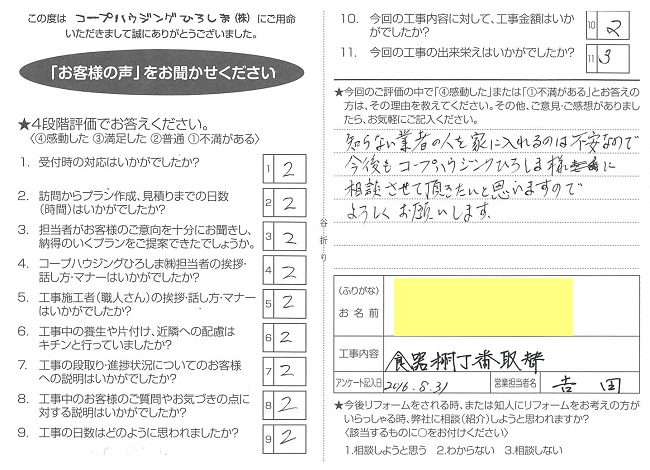 この度は コープハウジングひろしま(株) にご用命
いただきまして誠にありがとうございました。
「お客様の声」をお聞かせください
★4段階評価でお答えください。
〈④感動した ③満足した ②普通 ①不満がある〉
1. 受付時の対応はいかがでしたか? 1 2
2. 訪問からプラン作成、見積りまでの日数
(時間)はいかがでしたか? 2 2
3. 担当者がお客様のご意向を十分にお聞きし、
納得のいくプランをご提案できたでしょうか。 3 2
4. コープハウジングひろしま㈱担当者の挨拶・
話し方・マナーはいかがでしたか? 4 2
5. 工事施工者(職人さん)の挨拶・話し方・マナー
はいかがでしたか? 5 2
6. 工事中の養生や片付け、近隣への配慮は
キチンと行っていましたか? 6 2
7. 工事の段取り・進捗状況についてのお客様
への説明はいかがでしたか? 7 2
8. 工事中のお客様のご質問やお気づきの点に
対する説明はいかがでしたか? 8 2
9. 工事の日数はどのように思われましたか? 9 2
谷折り
10. 今回の工事内容に対して、工事金額はいか
がでしたか? 10 2
11. 今回の工事の出来栄えはいかがでしたか? 11 3
★今回のご評価の中で「④感動した」または「①不満がある」とお答えの
方は、その理由を教えてください。その他、ご意見・ご感想がありました
ら、お気軽にご記入ください。
知らない業者の人を家に入れるのは不安なので
今後もコープハウジングひろしま様に
相談させて頂きたいと思いますので
よろしくお願いします。
(ふりがな)
お名前
工事内容 食器棚丁番取替
アンケート記入日 2016.8.31 営業担当者名 吉田
★今後リフォームをされる時、または知人にリフォームをお考えの方が
いらっしゃる時、弊社に相談(紹介)しようと思われますか?
〈該当するものに○をお付けください〉
1.相談しようと思う 2.わからない 3.相談しない